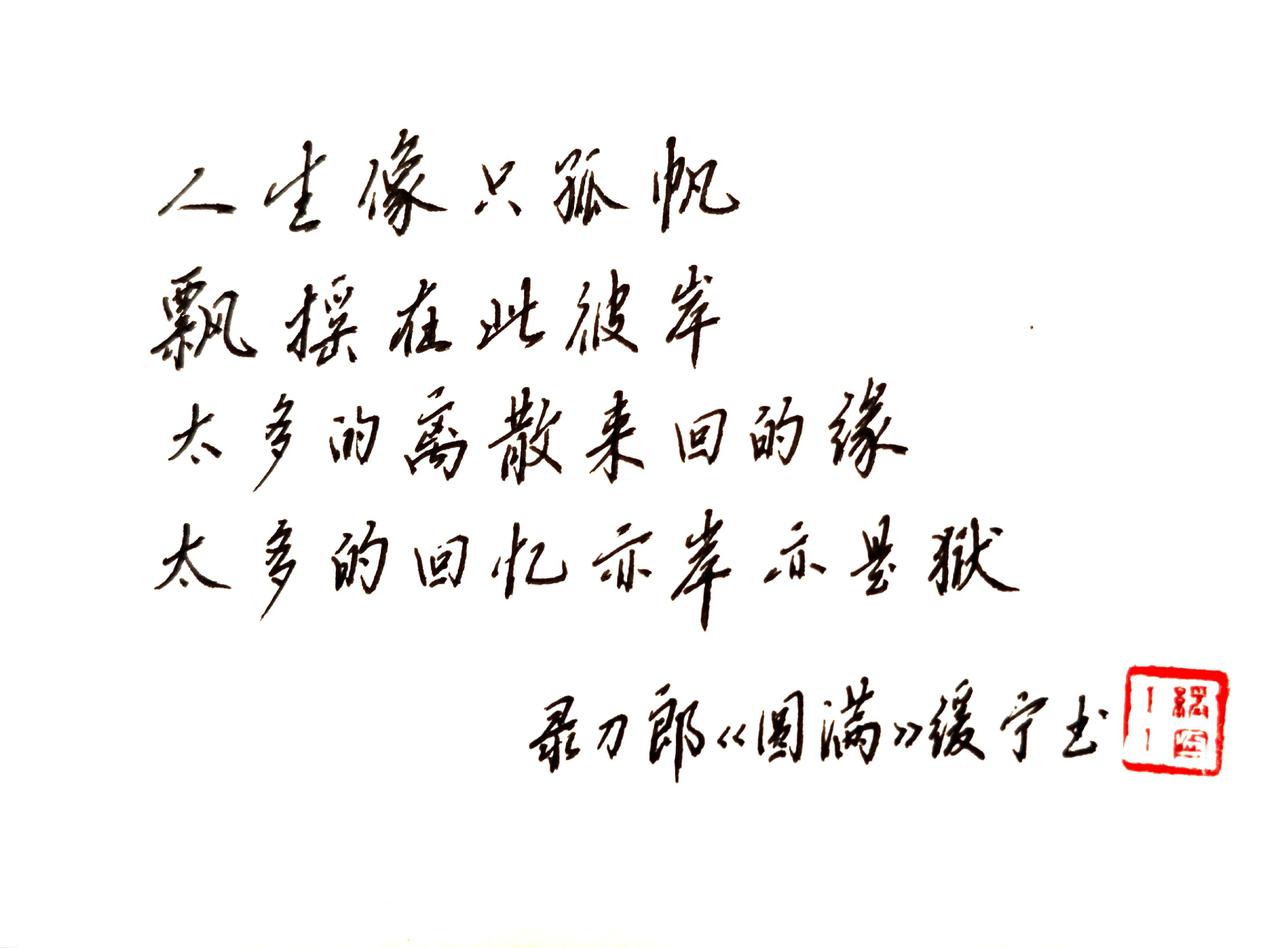 人生像只孤帆
飘摇在此彼岸
太多的离散来回的缘
太多的回忆亦岸亦是狱
录刀郎《圆满》缓宁书